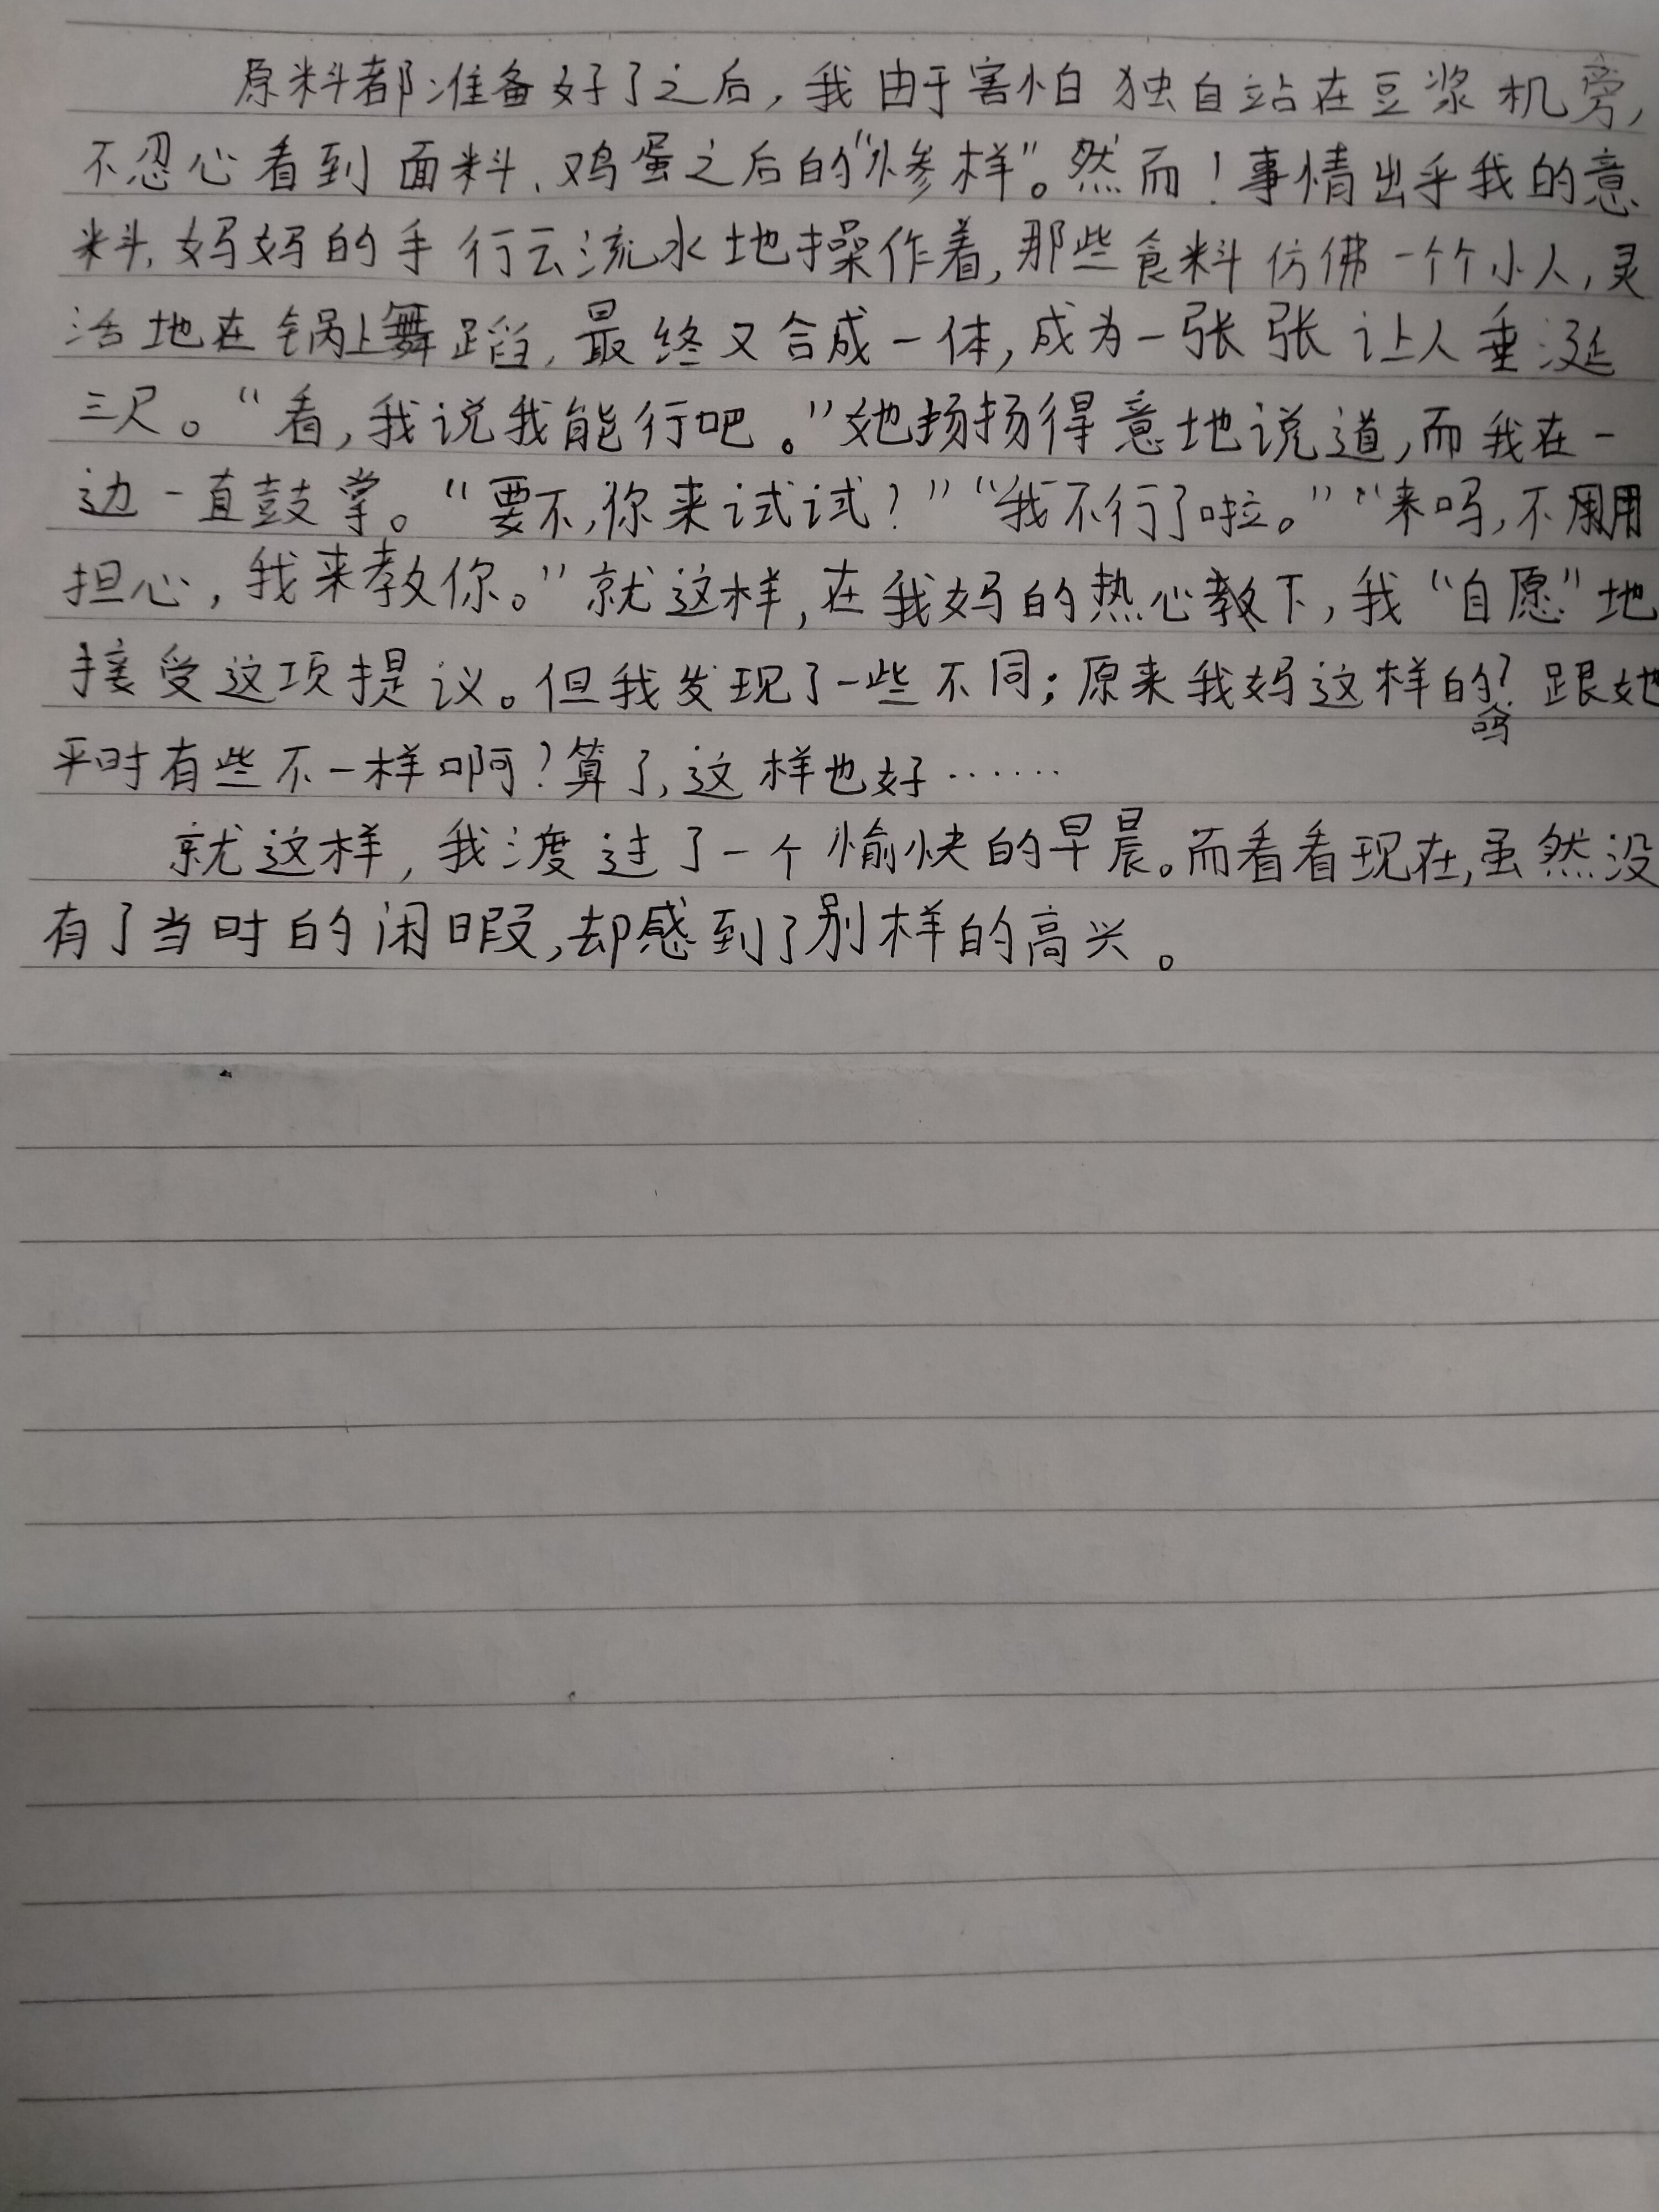 原料都准备好了之后，我由于害怕独自站在豆浆机旁，
不忍心看到面料、鸡蛋之后的“惨样”。然而！事情出乎我的意
料，妈妈的手行云流水地操作着，那些食料仿佛一个个小人，灵
活地在锅上舞蹈，最终又合成一体，成为一张张让人垂涎
三尺。“看，我说我能行吧。”她扬扬得意地说道，而我在一
边一直鼓掌。“要不，你来试试？”“我不行了啦。”“来吗，不用
担心，我来教你。”就这样，在我妈的热心教下，我“自愿”地
接受这项提议。但我发现了一些不同；原来我妈这样的吗？跟她
平时有些不一样啊？算了，这样也好……
就这样，我渡过了一个愉快的早晨。而看看现在，虽然没
有了当时的闲暇，却感到了别样的高兴。